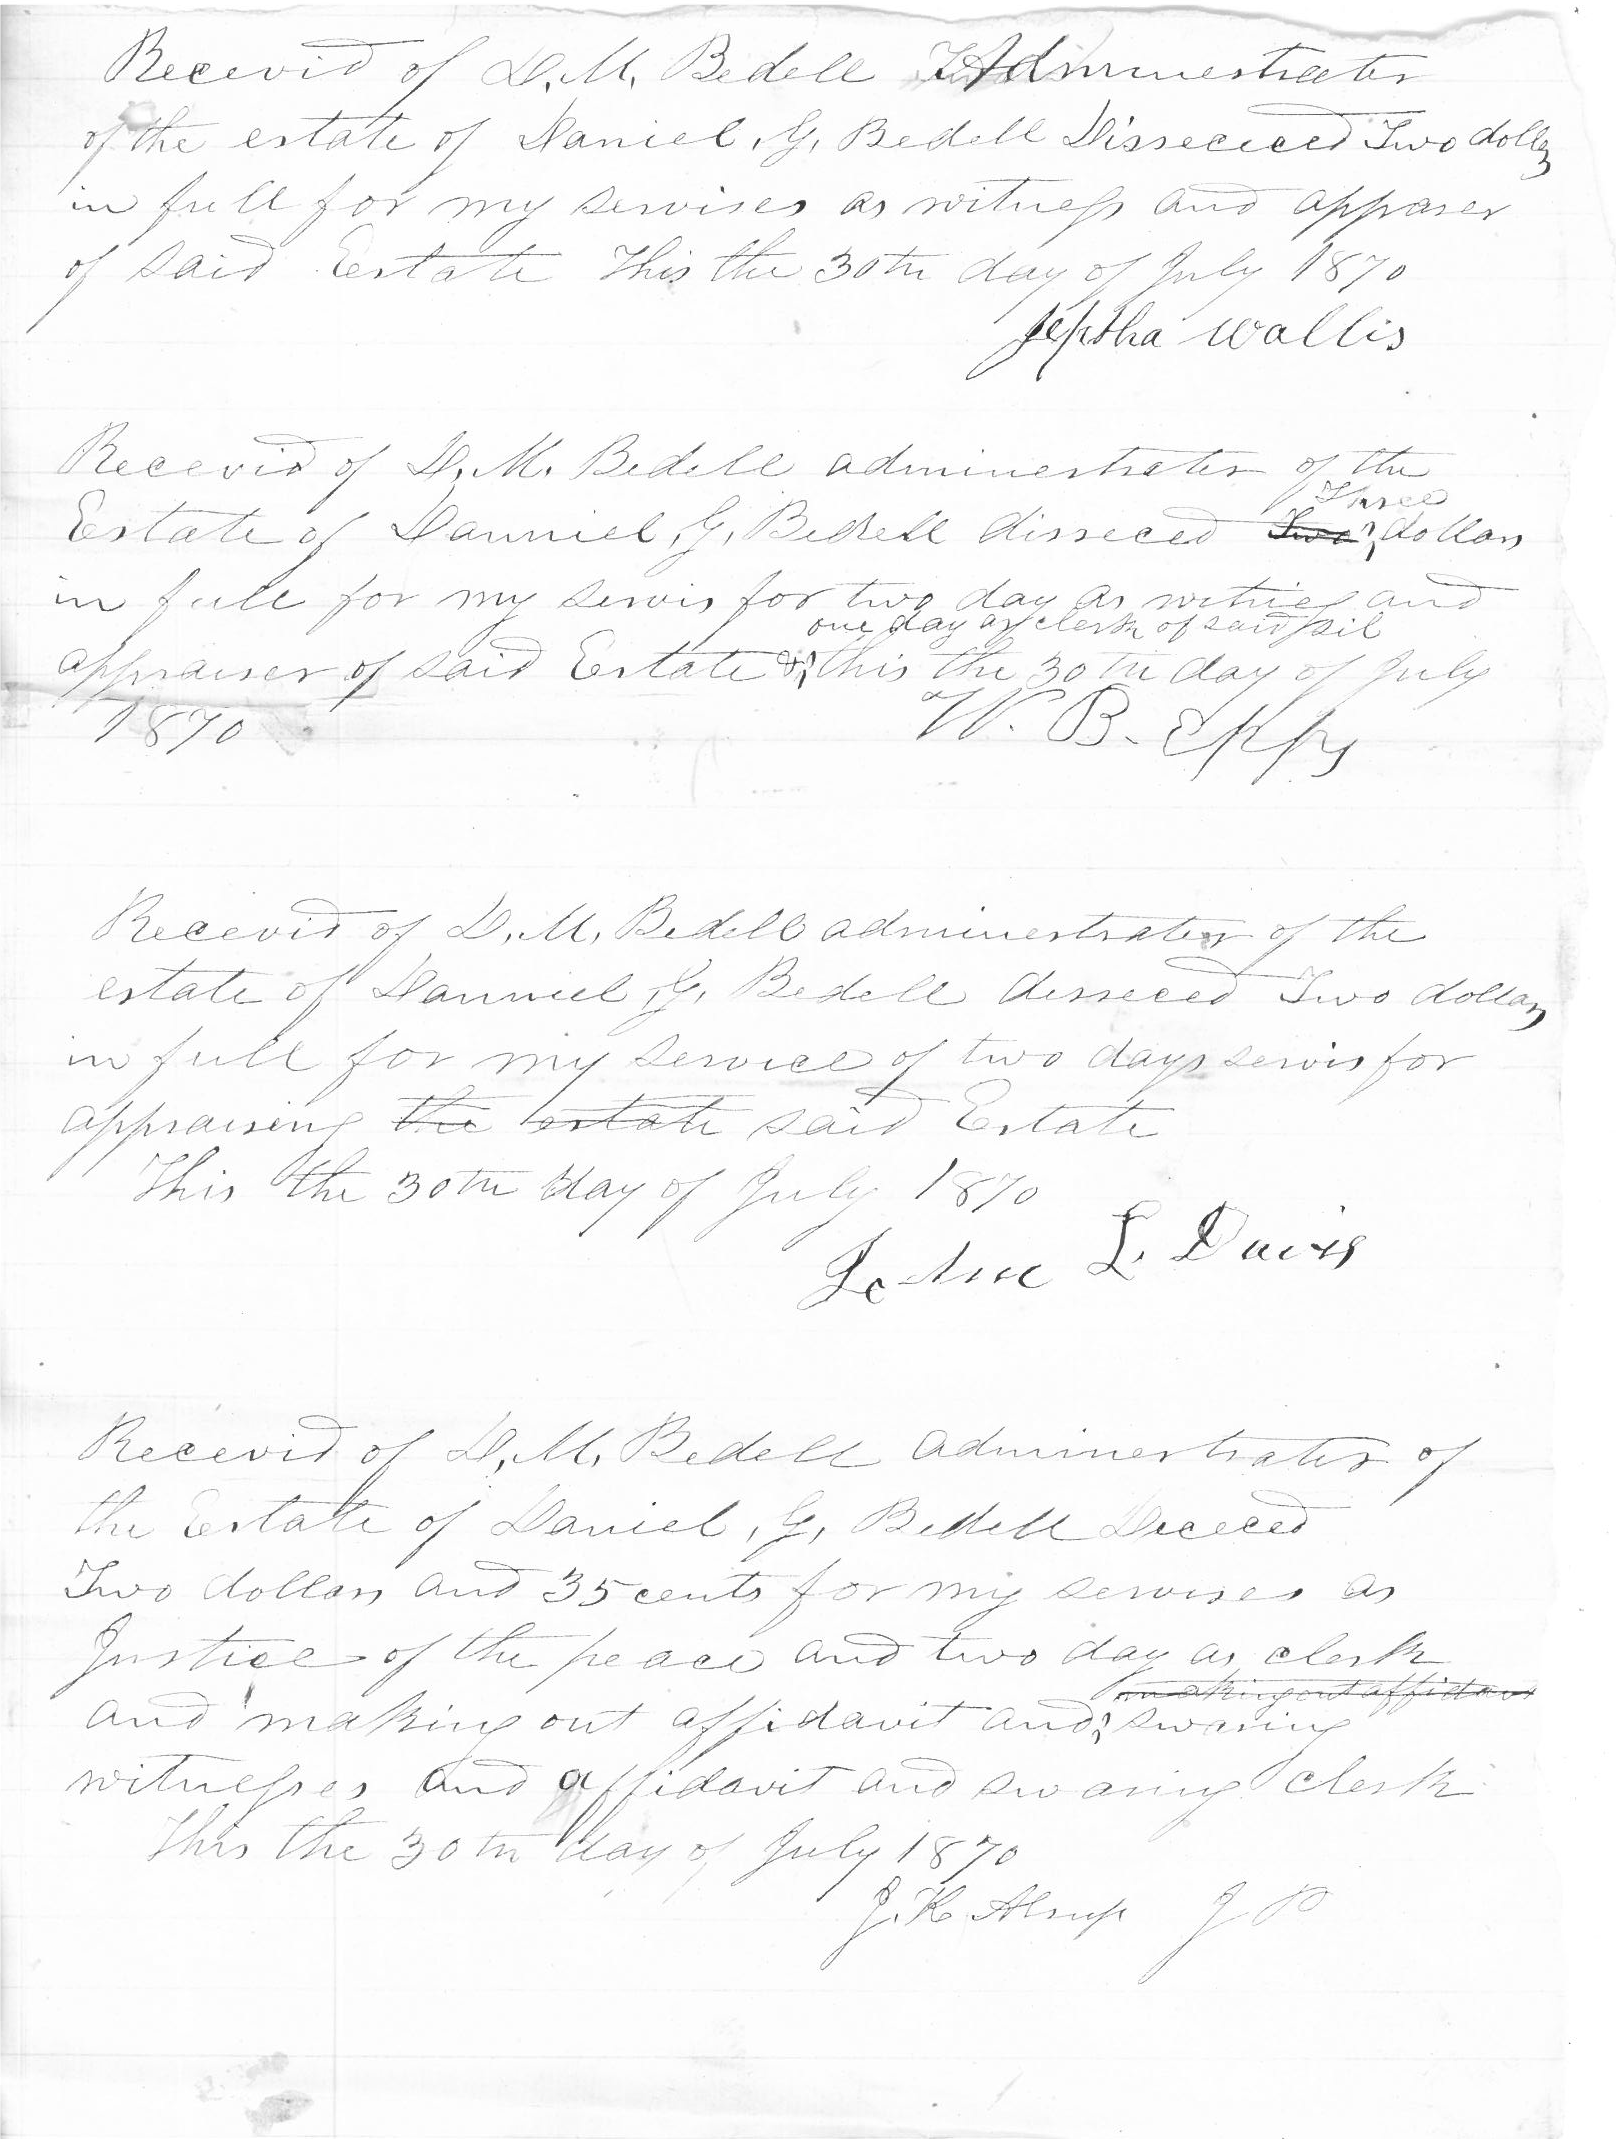 Recevid of D. M. Bedell Adminestrater
of the estate of Daniel, G, Bedell Disseceed Two dollars
in full for my servises as witness and appraser
of said Estate This the 30th day of July 1870
Jeptha Wallis
Recevid of D. M. Bedell adminestrater of the
Three
Estate of Danniel, G, Bedell disseced Two dollars
in full for my servis for two day as witnes and
one day as clerk of said sil
appraiser of said Estate & this the 30th day of July
1870 W. B. Epps
Recevid of D. M. Bedell adminestrater of the
estate of Danniel, G, Bedell desseced Two dollars
in full for my service of two days servis for
appraising the estate said Estate
This the 30th day of July 1870
L. Davis
Recevid of D. M. Bedell adminestrater of
the Estate of Daniel, G, Bedell Dececed
Two dollars and 35 cents for my servises as
Justice of the peace and two day as clerk
making out affidavit
and making out affidavit and swaring
witnesses and affidavit and swaring clerk
This the 30th day of July 1870
J. K. Alsup J P